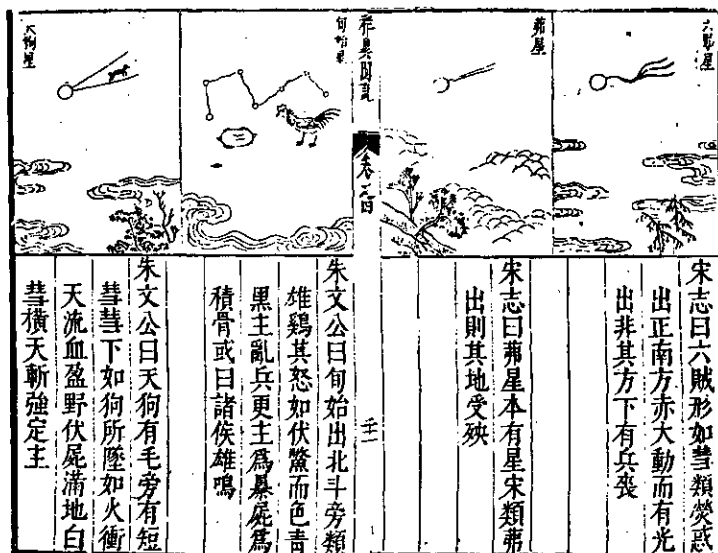 六賊星
宋志曰六賊形如彗類熒惑
出正南方赤大動而有光
出非其方下有兵喪
茀星
宋志曰茀星本有星宋類茀
出則其地受殃
祥異圖說
卷之四
旬始星
朱文公曰旬始出北斗旁類
雄鷄其怒如伏鱉而色青
黑主亂兵更主爲暴屍爲
積骨或曰諸侯雄鳴
天狗星
朱文公曰天狗有毛旁有短
彗彗下如狗所墜如火衝
天流血盈野伏屍滿地白
彗橫天斬強定主